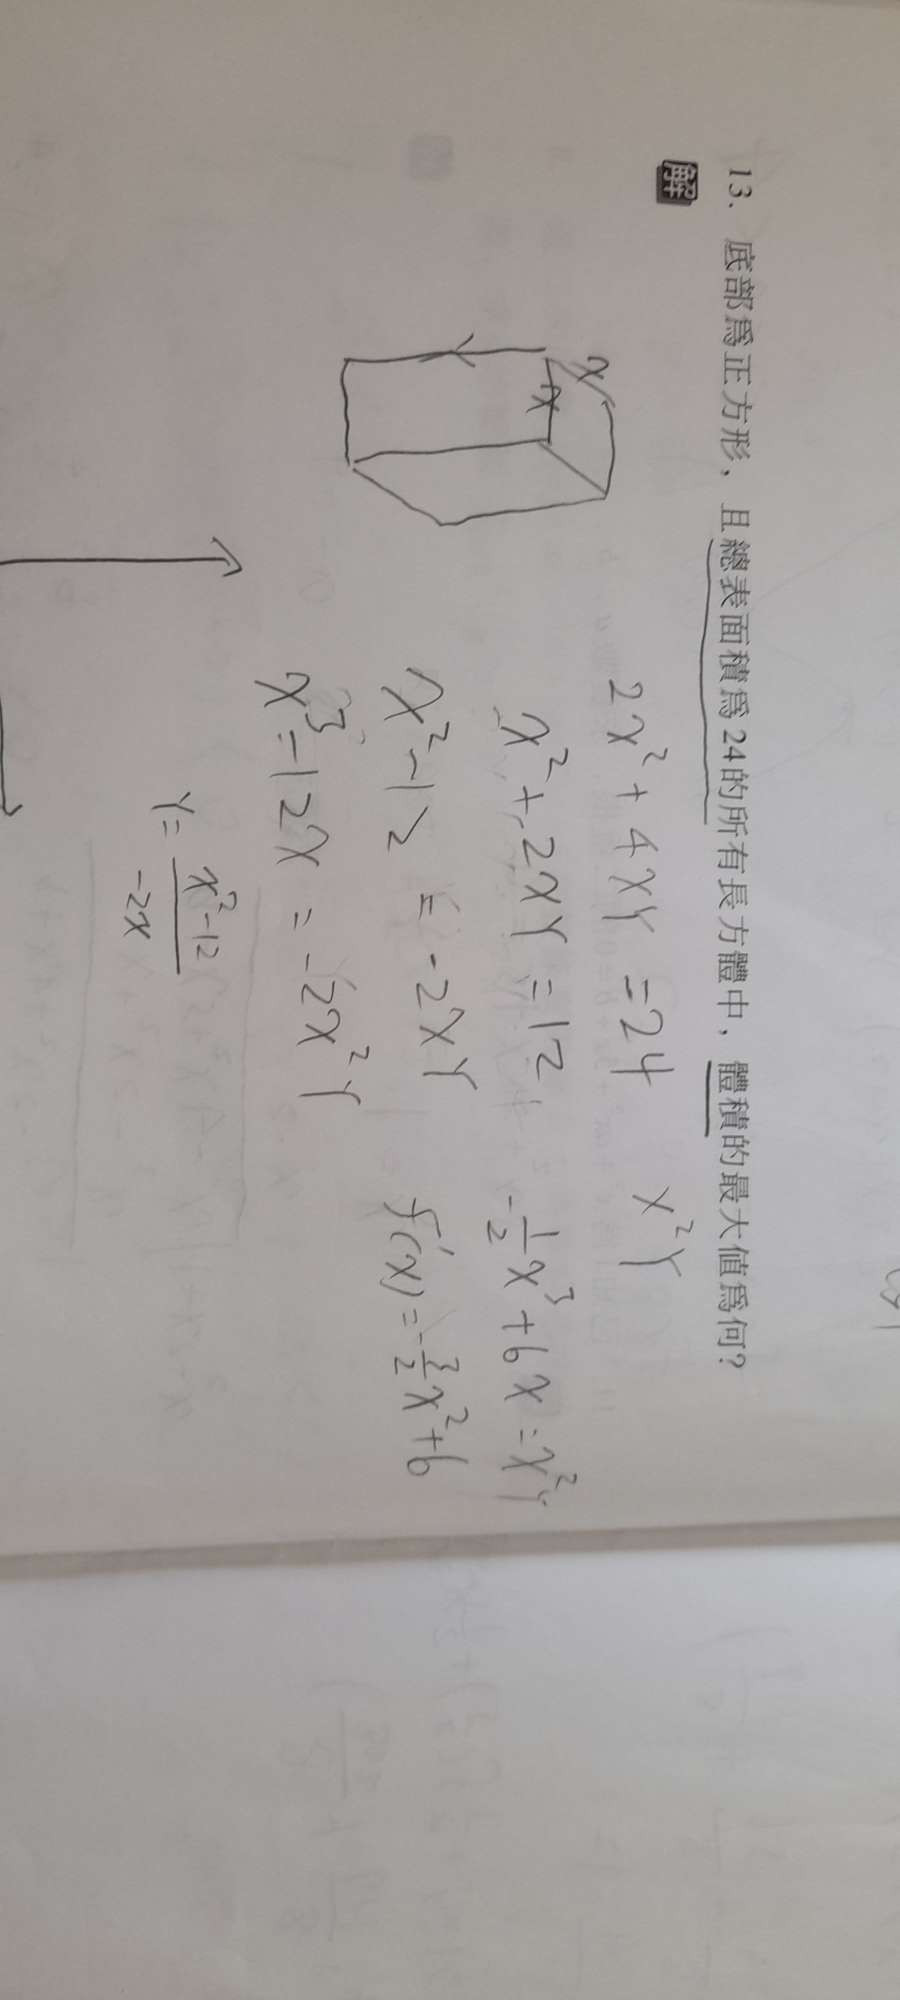 13. 底部為正方形，且總表面積為24的所有長方體中，體積的最大值為何？
解
x
x
Y
2x²+4xY=24
x²+2xY=12
x²-12=-2xY
x³=12x=-2x²Y
Y=\frac{x²-12}{-2x}
x²Y
-\frac{1}{2}x³+6x=x²Y
f'(x)=-\frac{3}{2}x²+6